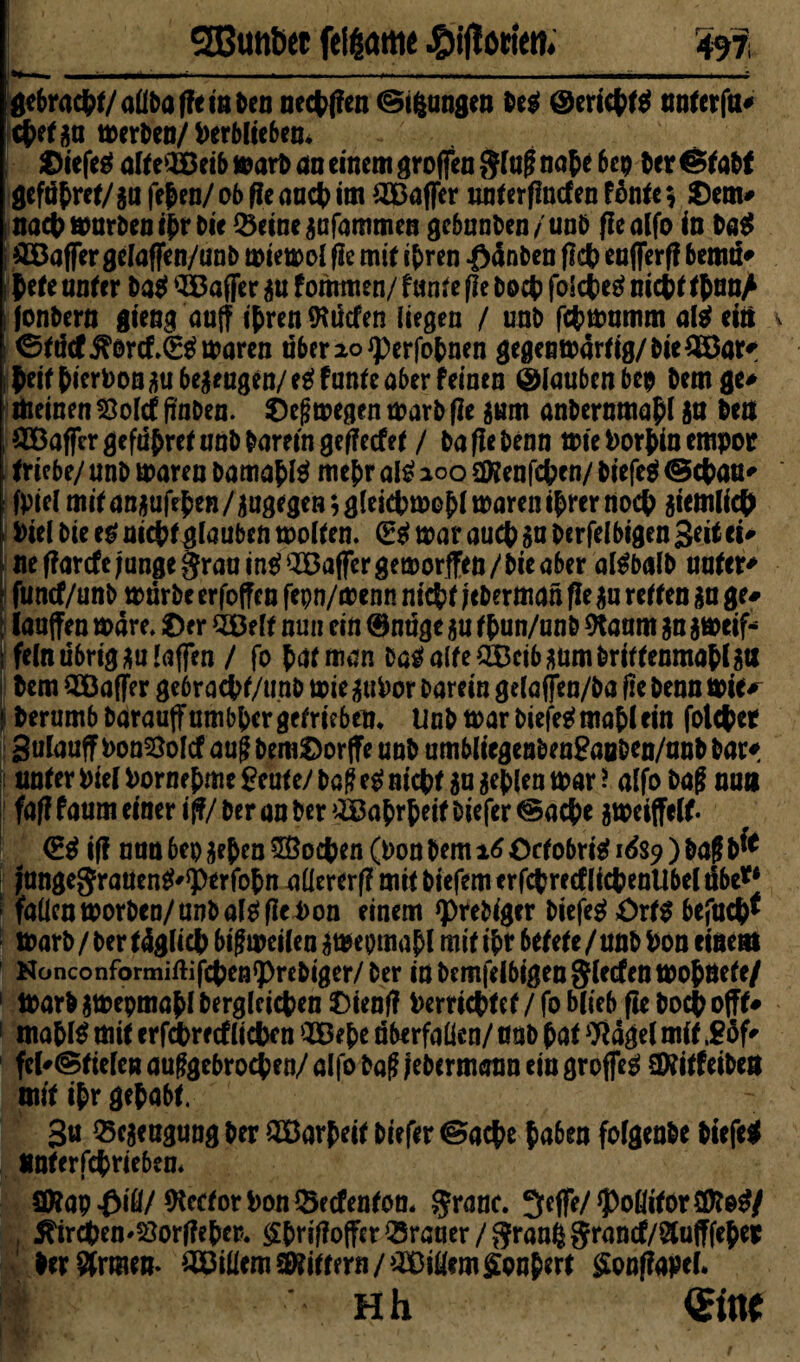 Wunder seltzame Historien. 497
gebracht/ allda sie in den nechsten Sitzungen des Gerichts untersu-
chet zu werden/ verblieben.
Dieses alte Weib ward an einem grossen Fluß nahe bey der Stadt
geführet/ zu sehen/ ob sie auch im Wasser untersincken könte; Dem-
nach wurden ihr die Beine zusammen gebunden/ und sie also in das
Wasser gelassen/ und wiewol sie mit ihren Händen sich eusserst bemü-
hete unter das Wasser zu kommen/ kunte sie doch solches nicht thun/
sondern gieng auff ihren Rücken liegen / und schwumm als ein
Stück Korck. Es waren über 20 Persohnen gegenwärtig/ die War-
heit hiervon zu bezeugen/ es kunte aber keinen Glauben bey dem ge-
meinen Volck finden. Deßwegen ward sie zum andernmahl zu den
Wasser geführet und darein gestecket / da sie denn wie vorhin empor
triebe/ und waren damahls mehr als 200 Menschen/ dieses Schau-
spiel mit anzusehen/ zugegen; gleichwohl waren ihrer noch ziemlich
viel die es nicht glauben wolten. Es war auch zu derselbigen Zeit ei-
ne starcke junge Frau ins Wasser geworffen/ die aber alsbald unter-
sunck/ und würde ersoffen seyn/ wenn nicht jederman sie zu retten zu ge-
lauffen wäre. Der Welt nun ein Gnüge zu thun/ und Raum zu zweif-
feln übrig zu lassen / so hat man das alte Weib zum drittenmahl zu
dem Wasser gebracht/ und wie zuvor darein gelassen/ da sie denn wie-
derumb darauff umbher getrieben. Und war dieses mahl ein solcher
Zulauff von Volck auß dem Dorffe und umbliegenden Landen/ und dar-
unter viel vornehme Leute/ daß es nicht zu zehlen war: also daß nun
fast kaum einer ist/ der an der Wahrheit dieser Sache zweiffelt.
Es ist nun bey zehen Wochen (von dem 26 Octobris 1689) daß die
junge Frauens-Persohn allererst mit diesem erschrecklichen Ubel über-
fallen worden/ und als sie von einem Prediger dieses Orts besucht
ward / der täglich bißweilen zweymahl mit ihr betete / und von einem
Nonconformistischen Prediger/ der in demselbigen Flecken wohnete/
ward zweymahl dergleichen Dienst verrichtet / so blieb sie doch offt-
mahls mit erschrecklichen Wehe überfallen/ und hat Nägel mit Löf-
fel-Stielen außgebrochen/ also daß jedermann ein grosses Mitleiden
mit ihr gehabt.
Zu Bezeugung der Warheit dieser Sache haben folgende dieses
unterschrieben.
May Hill/ Rector von Beckenton. Franc. Jesse/ Pollitor Mos/
Kirchen-Vorsteher. Christoffer Brauer / Frantz Franck/ Auffseher
der Armen. Willem Mittern / Willem Conhert Constapel.
Hh Eine